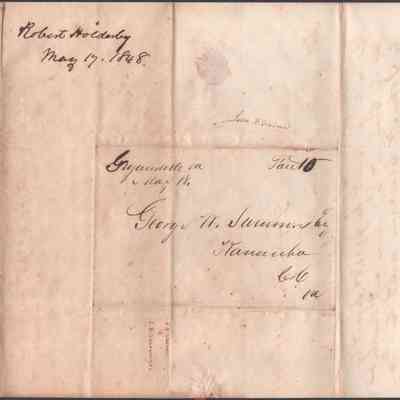 Robert Holderby
May 17. 1848.
Guyandotte va
May 18.
Paid 10
George W. Summers Esq
Kanawha
C.H.
va